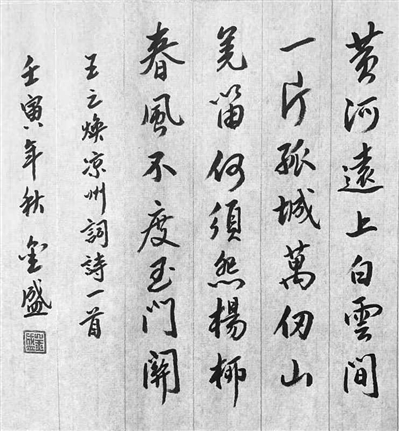 黄河遠上白雲間
一片孤城萬仞山
羌笛何須怨楊柳
春風不度玉門關
王之煥凉州詞詩一首
壬寅年秋 金盛